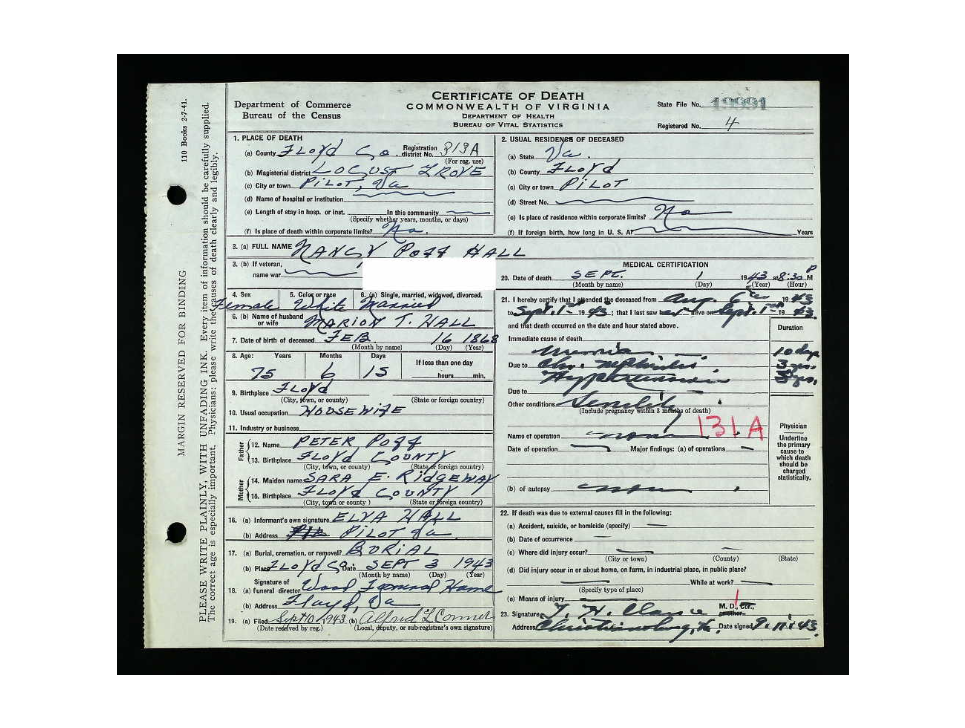 CERTIFICATE OF DEATH
COMMONWEALTH OF VIRGINIA
DEPARTMENT OF HEALTH
BUREAU OF VITAL STATISTICS
Department of Commerce
Bureau of the Census
State File No. 19991
Registered No. 4
110 Books 2-7-41.
MARGIN RESERVED FOR BINDING
PLEASE WRITE PLAINLY, WITH UNFADING INK. Every item of information should be carefully supplied.
The correct age is especially important. Physicians: please write the causes of death clearly and legibly.
1. PLACE OF DEATH
(a) County FLOYD Co. Registration district No. 313A
(For reg. use)
(b) Magisterial district LOCUST GROVE
(c) City or town PILOT, Va
(d) Name of hospital or institution
(e) Length of stay in hosp. or inst. In this community
(Specify whether years, months, or days)
(f) Is place of death within corporate limits? No.
2. USUAL RESIDENCE OF DECEASED
(a) State Va.
(b) County FLOYD
(c) City or town PILOT
(d) Street No.
(e) Is place of residence within corporate limits? No
(f) If foreign birth, how long in U. S. A? Years
3. (a) FULL NAME NANCY POFF HALL
3. (b) If veteran,
name war
4. Sex 5. Color or race 6. (a) Single, married, widowed, divorced.
Female White Married
6. (b) Name of husband or wife MARION T. HALL
7. Date of birth of deceased FEB. 16 1868
(Month by name) (Day) (Year)
8. Age: Years Months Days If less than one day
75 6 15 hours min.
9. Birthplace FLOYD
(City, town, or county) (State or foreign country)
10. Usual occupation HOUSEWIFE
11. Industry or business
Father
12. Name PETER POFF
13. Birthplace FLOYD COUNTY
(City, town, or county) (State or foreign country)
Mother
14. Maiden name SARA E. RIDGEWAY
15. Birthplace FLOYD COUNTY
(City, town or county) (State or foreign country)
16. (a) Informant's own signature ELVA HALL
(b) Address PILOT Va
17. (a) Burial, cremation, or removal? BURIAL
(b) Place FLOYD Co Date SEPT 3 1943
(Month by name) (Day) (Year)
18. Signature of (a) funeral director Wood Funeral Home
(b) Address Floyd, Va
19. (a) Filed Sept 10 1943 (b) Alfred L Conner
(Date received by reg.) (Local, deputy, or sub-registrar's own signature)
MEDICAL CERTIFICATION
20. Date of death SEPT. 1 1943 at 8:30 P M
(Month by name) (Day) (Year) (Hour)
21. I hereby certify that I attended the deceased from Aug. 6th 1943
to Sept. 1st 1943; that I last saw her alive on Sept. 1st 1943
and that death occurred on the date and hour stated above. Duration
Immediate cause of death
Uremia 10 days
Due to Chr. Nephritis 3 yrs.
Hypertension 3 yrs.
Due to
Other conditions Senility
(Include pregnancy within 3 months of death)
131A
Name of operation none
Date of operation Major findings: (a) of operations
(b) of autopsy none
Physician
Underline the primary cause to which death should be charged statistically.
22. If death was due to external causes fill in the following:
(a) Accident, suicide, or homicide (specify)
(b) Date of occurrence
(c) Where did injury occur?
(City or town) (County) (State)
(d) Did injury occur in or about home, on farm, in industrial place, in public place?
While at work?
(Specify type of place)
(e) Means of injury
23. Signature M. D.
Address Christiansburg, Va. Date signed 9.11.43